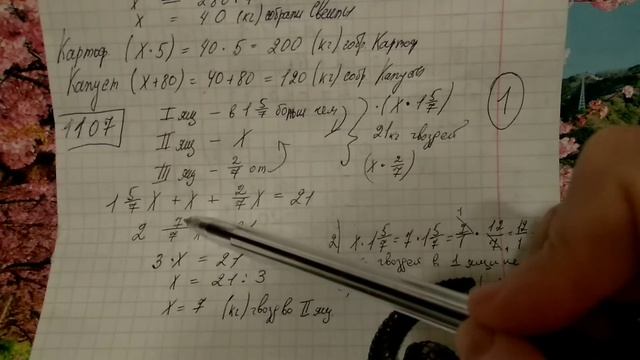 x = 40 (кг) собрали Свеклы
Картоф (x·5) = 40·5 = 200 (кг) собр Картоф
Капуст (x+80) = 40+80 = 120 (кг) собр Капусты
1107
I ящ – в 1 5/7 больш чем ·(x·1 5/7)
II ящ – x 21 кг гвоздей
III ящ – 2/7 от (x·2/7)
1
1 5/7 x + x + 2/7 x = 21
2 7/7
3·x = 21
x = 21:3
x = 7 (кг) гвозд во II ящ
2) x·1 5/7 = 7·1 5/7 = 7/1 · 12/7 = 12/1
гвоздей в 1 ящике